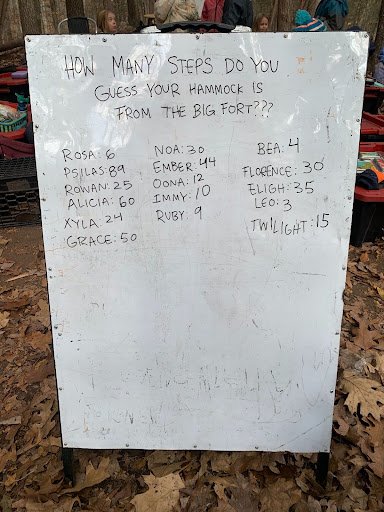 HOW MANY STEPS DO YOU
GUESS YOUR HAMMOCK IS
FROM THE BIG FORT???
ROSA: 6
PSILAS: 89
ROWAN: 25
ALICIA: 60
XYLA: 24
GRACE: 50
NOA: 30
EMBER: 44
OONA: 12
IMMY: 10
RUBY: 9
BEA: 4
FLORENCE: 30
ELIGH: 35
LEO: 3
TWILIGHT: 15